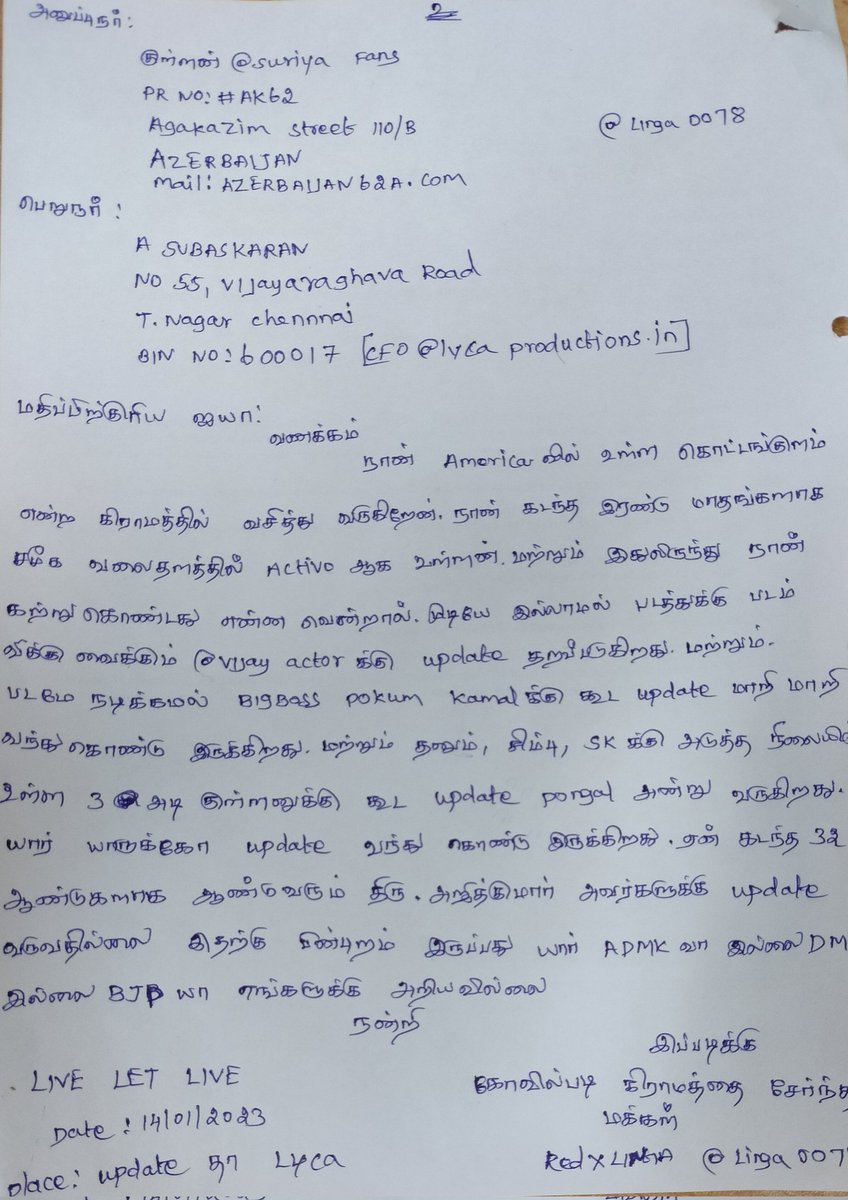 2
அனுப்புநர்:
குள்ளன் @suriya Fans
PR NO: #AK62
Agakazim street 110/B
@ Linga 0078
AZERBAIJAN
mail: AZERBAIJAN62A.COM
பெறுநர் :
A SUBASKARAN
NO 55, Vijayaraghava Road
T. Nagar chennnai
BIN NO: 600017 [CFO @lyca productions.in]
மதிப்பிற்குரிய ஐயா!
வணக்கம்
நான் America வில் உள்ள கொட்டங்குளம்
என்ற கிராமத்தில் வசித்து வருகிறேன். நான் கடந்த இரண்டு மாதங்களாக
சமீக வலைதளத்தில் Active ஆக உள்ளன். மற்றும் இதுலிருந்து நான்
கற்று கொண்டது என்ன வென்றால். முடியே இல்லாமல் படத்துக்கு படம்
விக்கு வைக்கும் @vijay actor க்கு update தறப்படுகிறது. மற்றும்.
படமே நடிக்கமல் BigBass Pokum Kamal க்கு கூட update மாறி மாறி
வந்து கொண்டு இருக்கிறது. மற்றும் தனும், சிம்பு, SK க்கு அடுத்த நிலையில்
உள்ள 3 அடி குள்ளனுக்கு கூட update pongal அன்று வருகிறது.
யார் யாருக்கோ update வந்து கொண்டு இருக்கிறது. ஏன் கடந்த 32
ஆண்டுகளாக ஆண்டுவரும் திரு. அஜித்குமார் அவர்களுக்கு update
வருவதில்லை இதற்கு பின்புறம் இருப்பது யார் ADMK வா இல்லை DM
இல்லை BJP யா எங்களுக்கு அறியவில்லை
நன்றி
இப்படிக்கு
LIVE LET LIVE
கோவில்படி கிராமத்தை சேர்ந்த
மக்கள்
Date : 14/01/2023
Place: update தா Lyca
Red X LINGA @ Linga 007